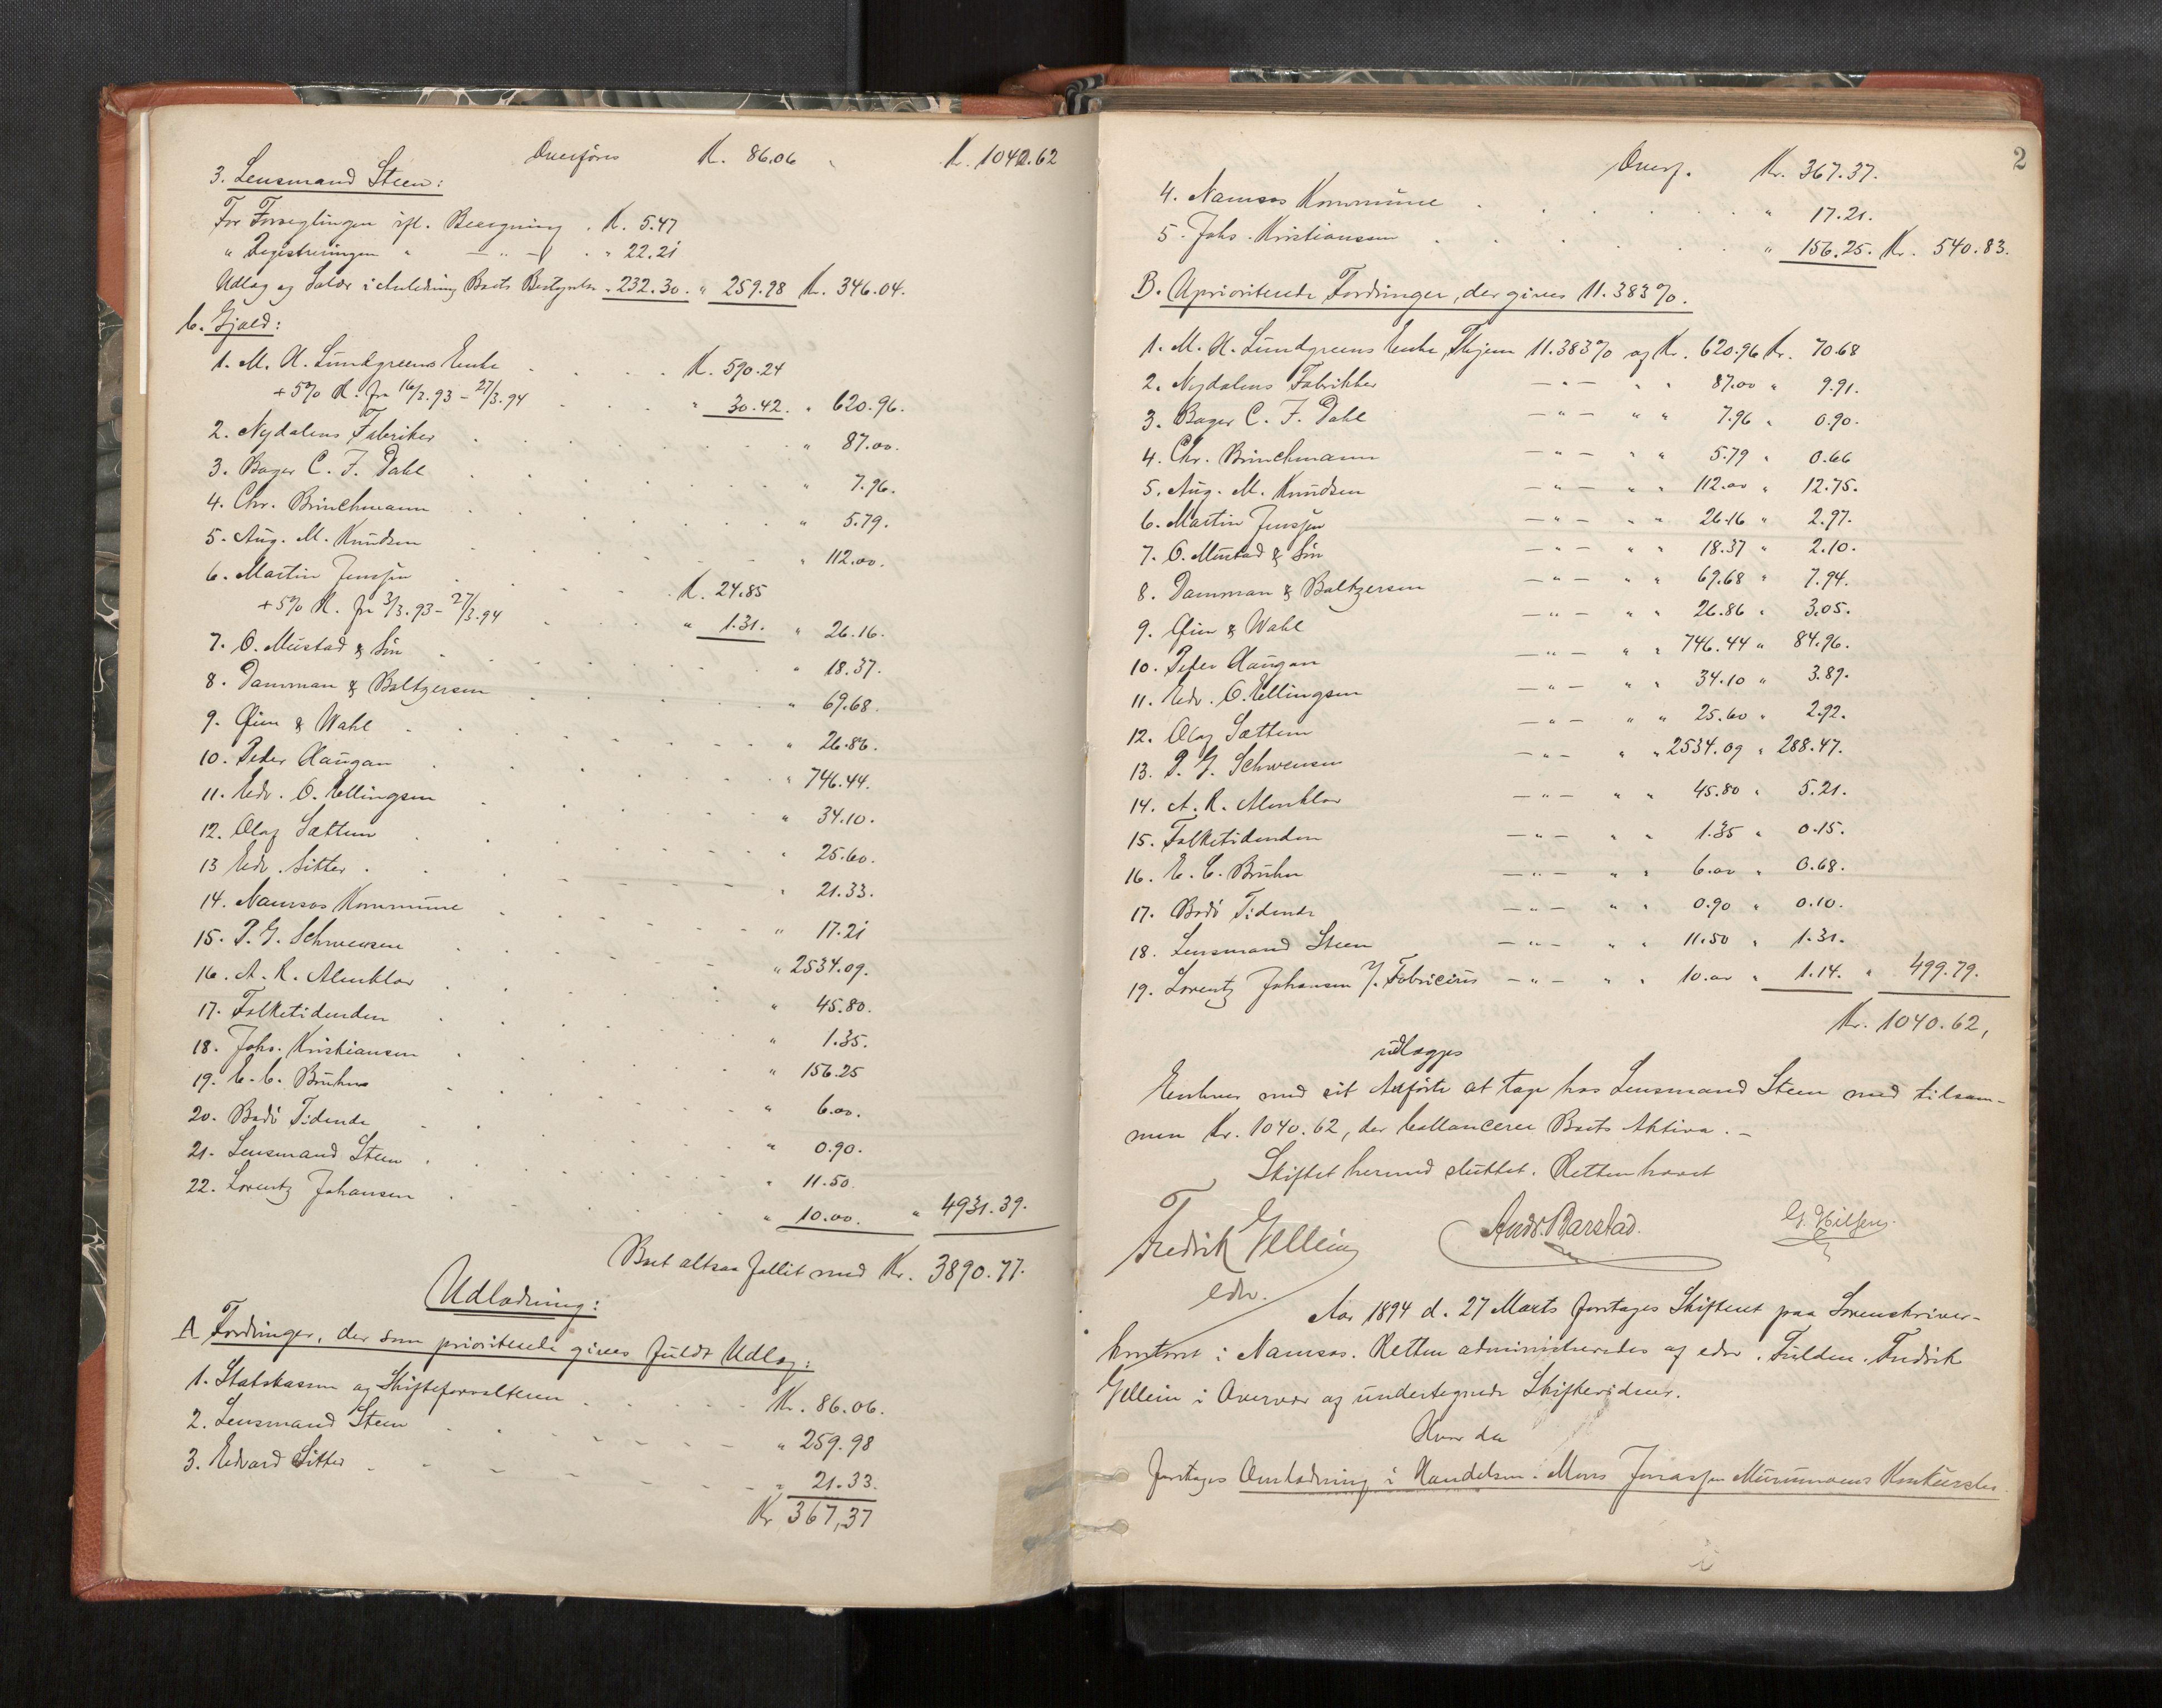 Overføres K. 86.06 K. 1040.62
3. Lensmand Steen:
For Forseglingen ifl. Beregning . K. 5.47
" Registreringen " — " — " 22.21
Udlæg og Salær i Anledning Boets Bestyrelse " 232.30. " 259.98 K. 346.04.
b. Gjæld:
1. M. A. Lundgreens Enke . . . . K. 590.24
+ 5% R. fra 16/3.93 – 27/3.94 . . . " 30.42. " 620.96.
2. Nydalens Fabriker . . . " 87.00.
3. Bager C. F. Dahl . . . " 7.96.
4. Chr. Brinchmann . . . " 5.79.
5. Aug. M. Knudsen . . . " 112.00.
6. Martin Jenssen . . . K. 24.85
+ 5% R. fra 3/3.93 – 27/3.94 . . . " 1.31. " 26.16.
7. O. Mustad & Søn . . . " 18.37.
8. Damman & Baltzersen . . . " 69.68.
9. Qvien & Wahl . . . " 26.86.
10. Peder Haugan . . . " 746.44.
11. Edv. O. Ellingsen . . . " 34.10.
12. Olaf Sættem . . . " 25.60.
13 Edv. Sitter . . . " 21.33.
14. Namsos Kommune . . . " 17.21
15. P. G. Schwensen . . . " 2534.09.
16. A. K. Almklov . . . " 45.80.
17. Folketidenden . . . " 1.35.
18. Johs. Kristiansen . . . " 156.25
19. E. C. Bruhns . . . " 6.00.
20. Bodø Tidende . . . " 0.90.
21. Lensmand Steen . . . " 11.50.
22. Lorentz Johansen . . . " 10.00. " 4931.39.
Boet altsaa fallit med Kr. 3890.77.
Udlodning:
A Fordringer, der som prioriterede gives fuldt Udlæg:
1. Statskassen og Skifteforvalteren . . . Kr. 86.06.
2. Lensmand Steen . . . " 259.98
3. Edvard Sitter . . . " 21.33.
Kr 367,37
2
Overf. Kr. 367.37.
4. Namsos Kommune . . . " 17.21.
5. Johs. Kristiansen . . . " 156.25. Kr. 540.83.
B. Uprioriterede Fordringer, der gives 11.383%.
1. M. A. Lundgreens Enke, Thjem 11.383% af Kr. 620.96 Kr. 70.68
2. Nydalens Fabrikker — " — " " 87.00 " 9.91.
3. Bager C. F. Dahl — " — " " 7.96 " 0.90.
4. Chr. Brinchmann — " — " " 5.79 " 0.66
5. Aug. M. Knudsen — " — " " 112.00 " 12.75.
6. Martin Jenssen — " — " " 26.16 " 2.97.
7. O. Mustad & Søn — " — " " 18.37 " 2.10.
8. Damman & Baltzersen — " — " " 69.68 " 7.94.
9. Qvien & Wahl — " — " " 26.86 " 3.05.
10. Peter Haugan — " — " " 746.44 " 84.96.
11. Edv. O. Ellingsen — " — " " 34.10 " 3.89.
12. Olaf Sættem — " — " " 25.60 " 2.92.
13. P. G. Schwensen — " — " " 2534.09 " 288.47.
14. A. K. Almklov — " — " " 45.80 " 5.21.
15. Folketidenden — " — " " 1.35 " 0.15.
16. E. C. Bruhn — " — " " 6.00 " 0.68.
17. Bodø Tidende — " — " " 0.90 " 0.10.
18. Lensmand Steen — " — " " 11.50 " 1.31.
19. Lorentz Johansen v/. Fabricius — " — " " 10.00 " 1.14. " 499.79.
Kr. 1040.62,
udlægges
Enhver med sit Anførte at tage hos Lensmand Steen med tilsam-
men Kr. 1040.62, der ballancerer Boets Aktiva. –
Skiftet hermed sluttet. Retten hævet
Fredrik Gellein Andr. Barstad. G. Nilsen
edv.
Aar 1894 d. 27 Marts foretages Skifteret paa Sorenskriver-
kontoret i Namsos. Retten administreredes af edsv. Fuldm. Fredrik
Gellein i Overvær af undertegnede Skiftevidner.
Hvor da
foretages Omlodning i Handelsm. Mons Jonassen Murumoens Konkursbo